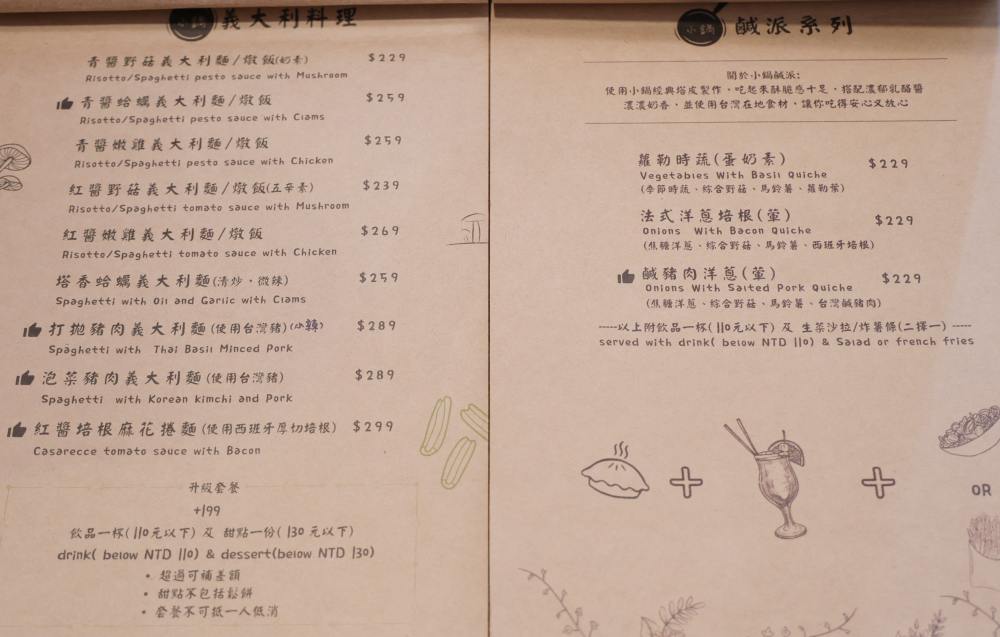 小鍋 義大利料理
青醬野菇義大利麵/燉飯(奶素) $229
Risotto/Spaghetti pesto sauce with Mushroom
青醬蛤蠣義大利麵/燉飯 $259
Risotto/Spaghetti pesto sauce with Clams
青醬嫩雞義大利麵/燉飯 $259
Risotto/Spaghetti pesto sauce with Chicken
紅醬野菇義大利麵/燉飯(五辛素) $239
Risotto/Spaghetti tomato sauce with Mushroom
紅醬嫩雞義大利麵/燉飯 $269
Risotto/Spaghetti tomato sauce with Chicken
塔香蛤蠣義大利麵(清炒·微辣) $259
Spaghetti with Oil and Garlic with Clams
打拋豬肉義大利麵(使用台灣豬)(小辣) $289
Spaghetti with Thai Basil Minced Pork
泡菜豬肉義大利麵(使用台灣豬) $289
Spaghetti with Korean kimchi and Pork
紅醬培根麻花捲麵(使用西班牙厚切培根) $299
Casarecce tomato sauce with Bacon
升級套餐
+199
飲品一杯(110元以下) 及 甜點一份(130元以下)
drink( below NTD 110) & dessert(below NTD 130)
• 超過可補差額
• 甜點不包括鬆餅
• 套餐不可抵一人低消
小鍋 鹹派系列
關於小鍋鹹派:
使用小鍋經典塔皮製作,吃起來酥脆感十足,搭配濃郁乳酪醬
濃濃奶香,並使用台灣在地食材,讓你吃得安心又放心
羅勒時蔬(蛋奶素) $229
Vegetables With Basil Quiche
(季節時蔬、綜合野菇、馬鈴薯、羅勒葉)
法式洋蔥培根(葷) $229
Onions With Bacon Quiche
(焦糖洋蔥、綜合野菇、馬鈴薯、西班牙培根)
鹹豬肉洋蔥(葷) $229
Onions With Salted Pork Quiche
(焦糖洋蔥、綜合野菇、馬鈴薯、台灣鹹豬肉)
-----以上附飲品一杯(110元以下) 及 生菜沙拉/炸薯條(二擇一) -----
served with drink( below NTD 110) & Salad or french fries
+ +
OR